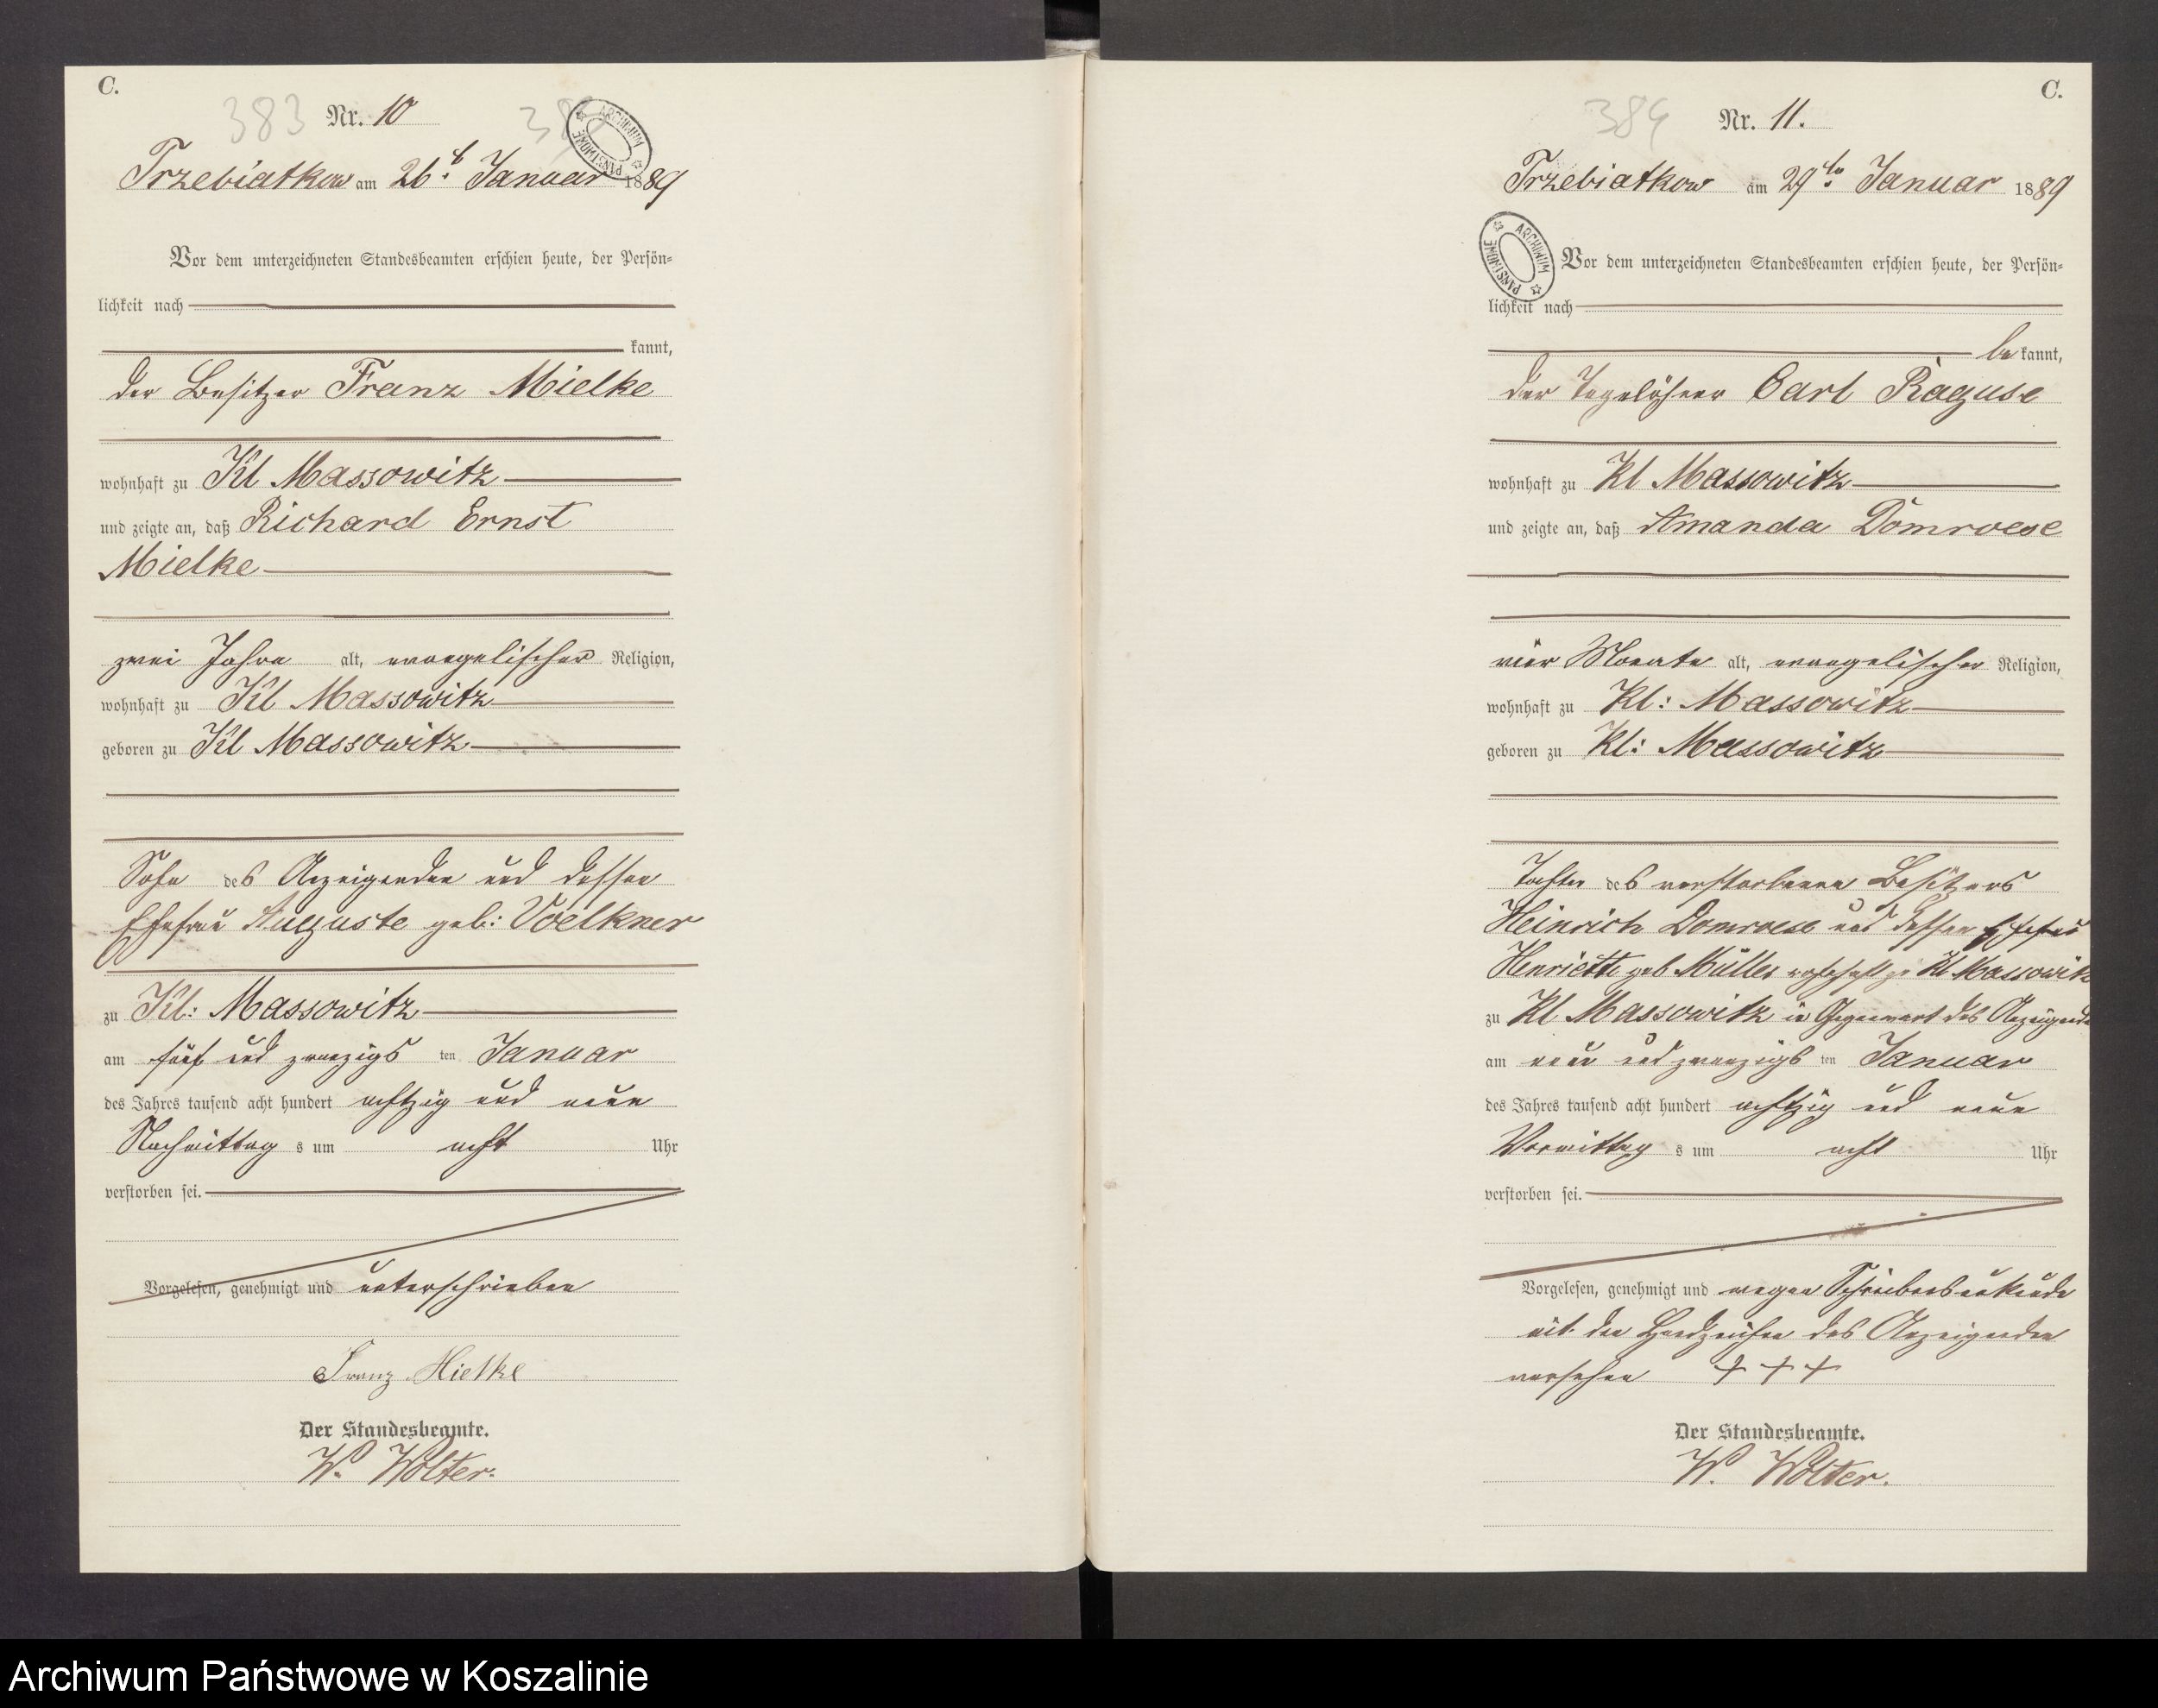 C.
383 Nr. 10
ARCHIWUM PAŃSTWOWE
Trzebiatkow am 26t Januar 1889
Vor dem unterzeichneten Standesbeamten erschien heute, der Persön-
lichkeit nach
kannt,
der Besitzer Franz Mielke
wohnhaft zu Kl Massowitz
und zeigte an, daß Richard Ernst
Mielke
zwei Jahre alt, evangelischer Religion,
wohnhaft zu Kl Massowitz
geboren zu Kl Massowitz
Sohn des Anzeigenden und dessen
Ehefrau Auguste geb: Voelkner
zu Kl: Massowitz
am fünf und zwanzigsten Januar
des Jahres tausend acht hundert achtzig und neun
Nachmittags um acht Uhr
verstorben sei.
Vorgelesen, genehmigt und unterschrieben
Franz Mielke
Der Standesbeamte.
W. Wolter.
C.
384 Nr. 11.
Trzebiatkow am 29ten Januar 1889
ARCHIWUM PAŃSTWOWE
Vor dem unterzeichneten Standesbeamten erschien heute, der Persön-
lichkeit nach
bekannt,
der Tagelöhner Carl Raguse
wohnhaft zu Kl Massowitz
und zeigte an, daß Amanda Domroese
vier Monate alt, evangelischer Religion,
wohnhaft zu Kl: Massowitz
geboren zu Kl: Massowitz
Tochter des verstorbenen Besitzers
Heinrich Domroese und dessen Ehefrau
Henriette geb Müller wohnhaft zu Kl Massowitz
zu Kl Massowitz in Gegenwart des Anzeigenden
am neun und zwanzigsten Januar
des Jahres tausend acht hundert achtzig und neun
Vormittags um acht Uhr
verstorben sei.
Vorgelesen, genehmigt und wegen Schreibensunkunde
mit den Handzeichen des Anzeigenden
versehen + + +
Der Standesbeamte.
W. Wolter.
Archiwum Państwowe w Koszalinie